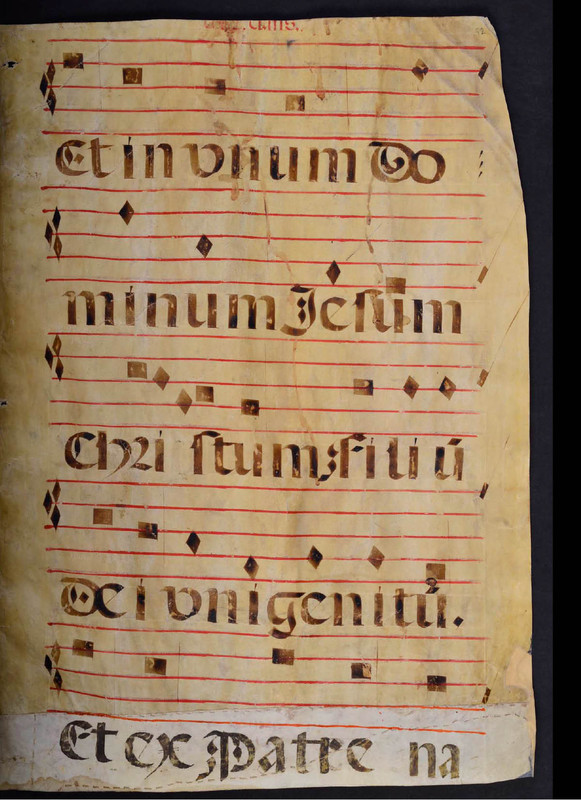 Et in vnum Do
minum Jesum
Chri stum, fili ū
Dei vnigenitū.
Et ex Patre na